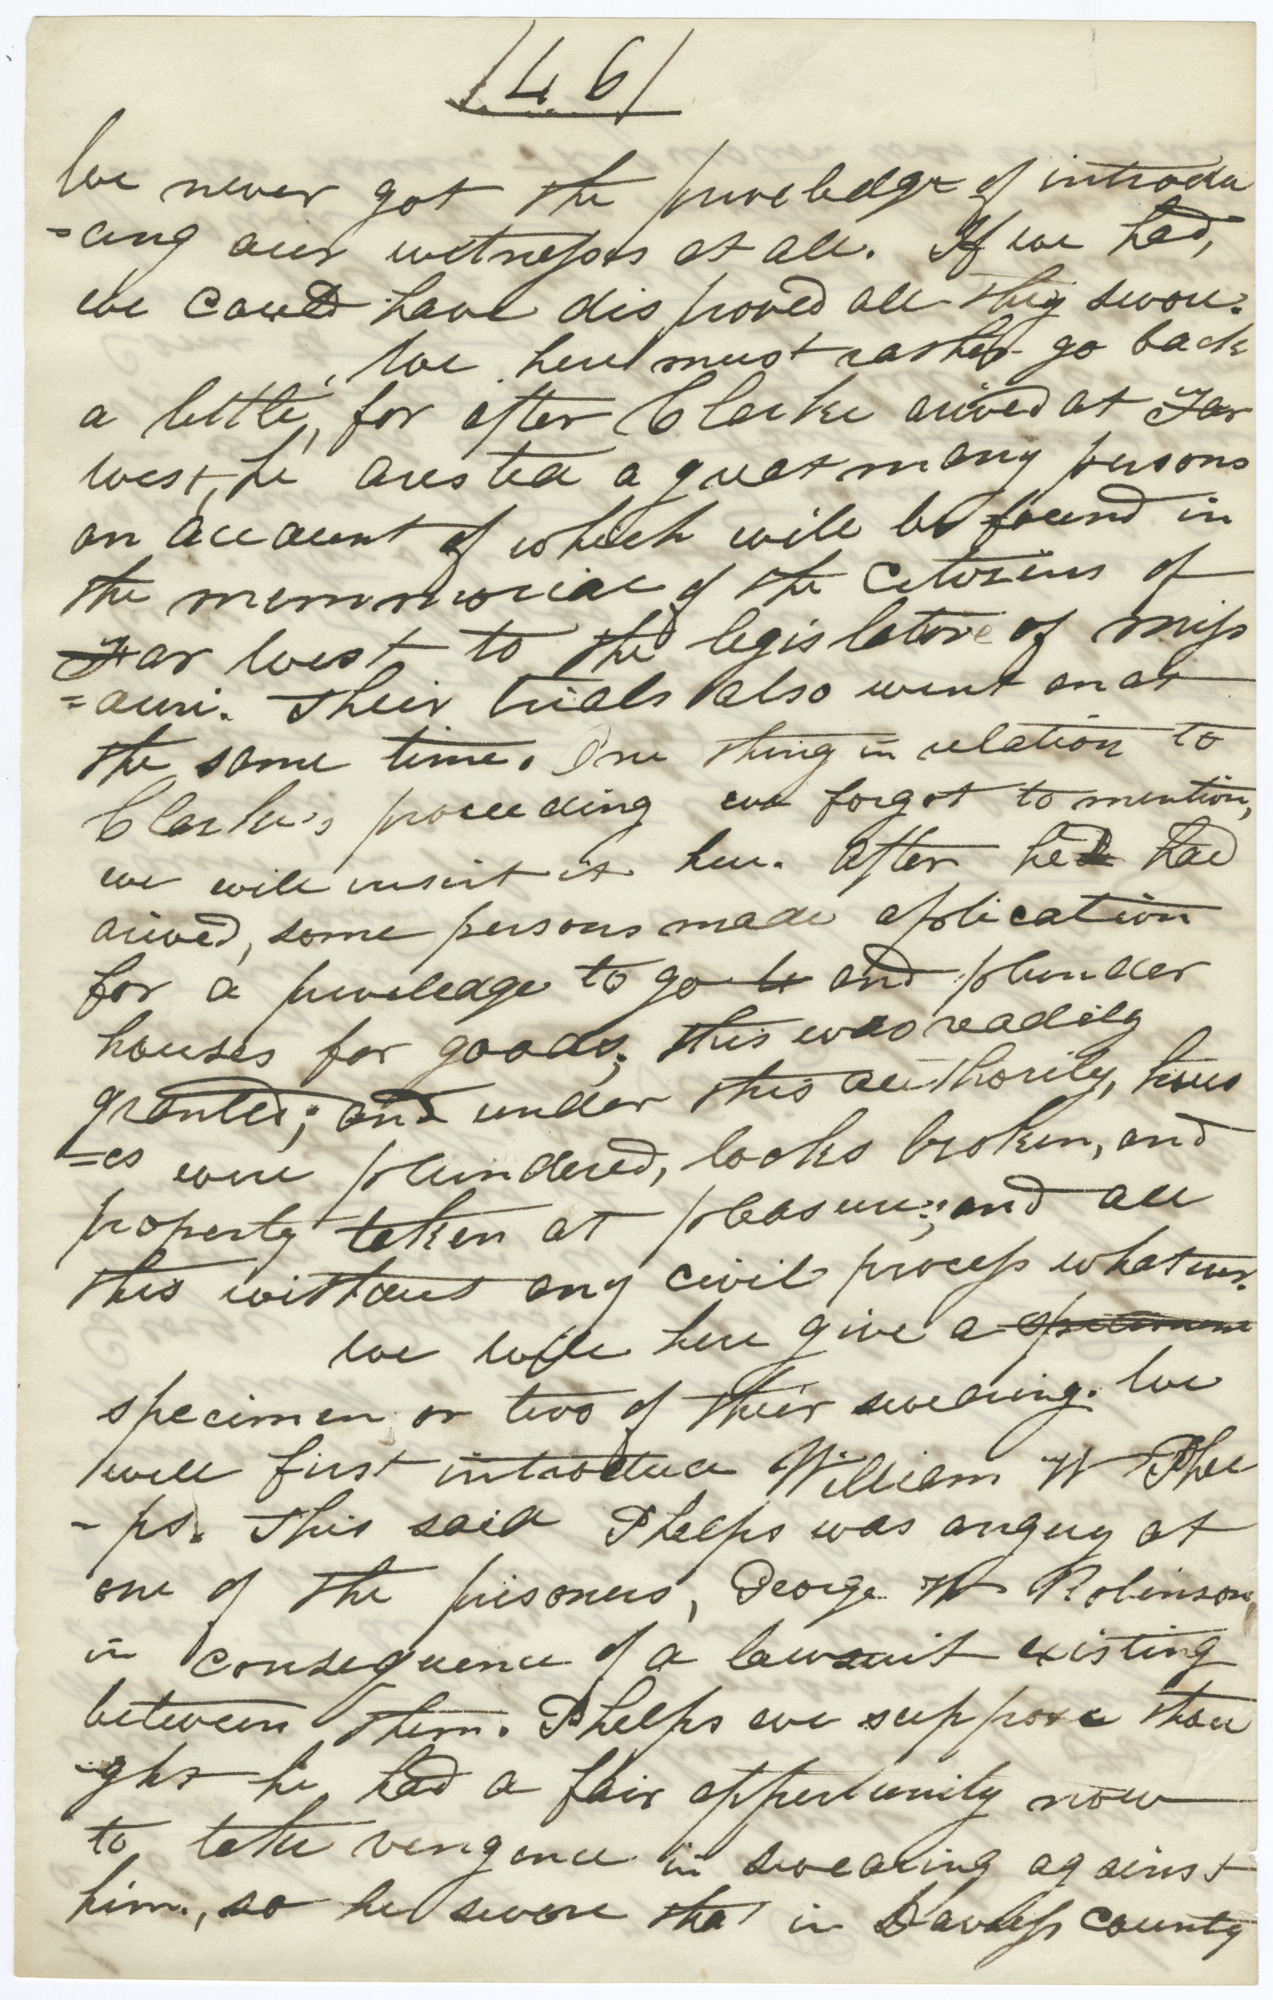 /46/
We never got the priveledge of introdu
=cing our witnesses at all. If we had,
we could have disproved all they swore.
We here must rather go back
a little, for after Clarke arived at Far
west, he arested a great many persons
an account of which will be found in
the memmorial of the Citizens of
Far West to the legislatore of Miss
=ouri. Their trials also went on at
the same time. One thing in relation to
Clarke's proceeding we forgot to mention,
we will insert it here. After he had
arived, some persons made aplication
for a priveledge to go and plunder
houses for goods; this was readily
granted; and under this authority, hous
=es were plundered, locks broken, and
property taken at pleasure; and all
this without any civil process whatever.
We will here give a specimene
specimen or two of their swearing. We
will first introduce William W Phel
-ps. This said Phelps was angry at
one of the prisoners, George W Robinson,
in consequence of a lawsuit existing
between them. Phelps we suppose thou
-ght he had a fair oppertunity now
to take vengence in swearing against
him, so he swore that in Davess County